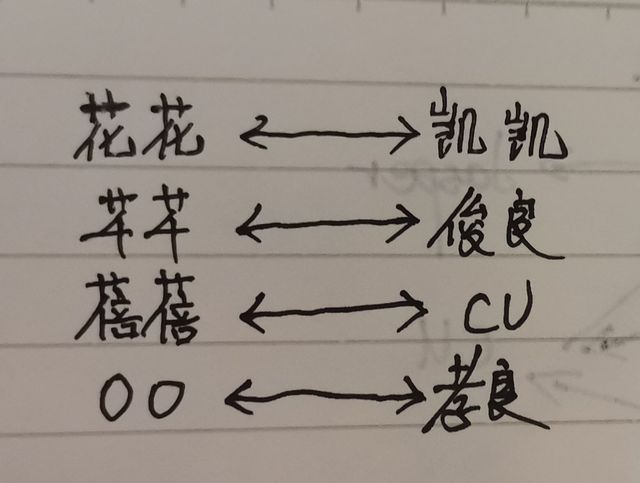 花花 ↔ 凯凯
芊芊 ↔ 俊良
蓓蓓 ↔ CU
OO ↔ 孝良